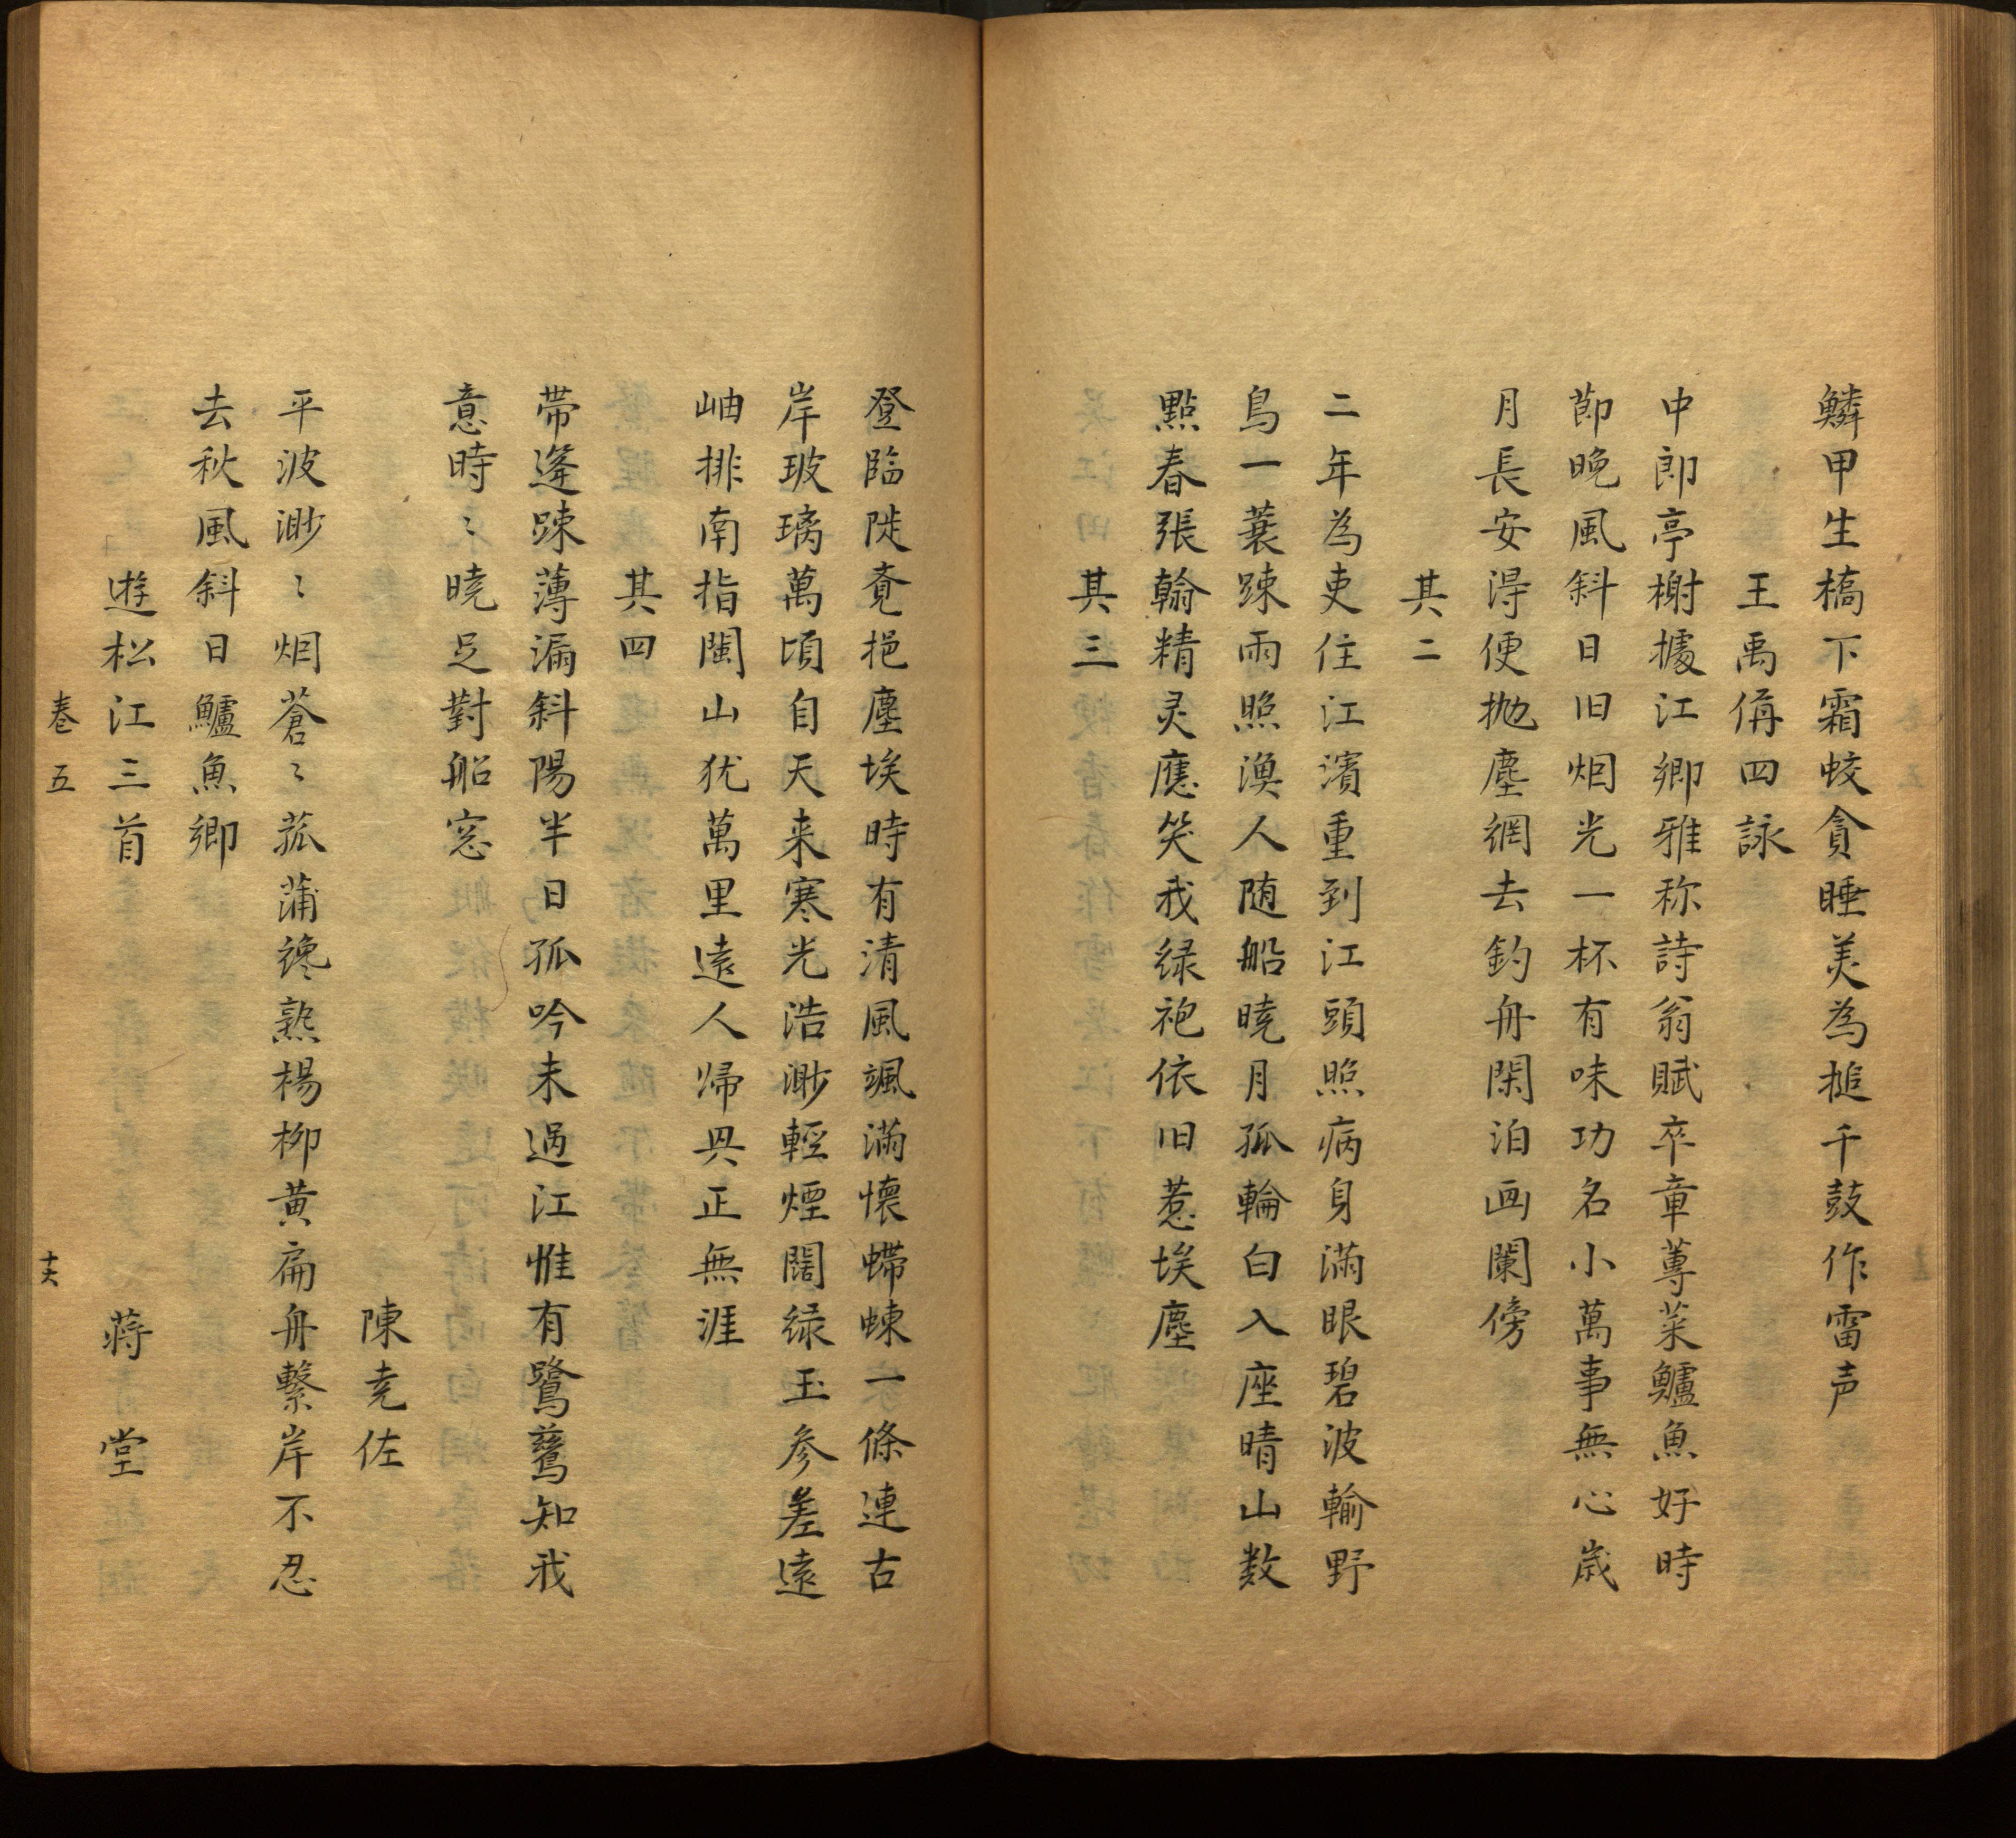 鱗甲生橋下霜蛟貪睡美為搥千鼓作雷声
王禹偁四詠
中郎亭榭據江鄉雅称詩翁賦卒章蓴菜鱸魚好時
節晚風斜日旧烟光一杯有味功名小萬事無心歳
月長安淂便抛塵網去釣舟閑泊画闌傍
其二
二年為吏住江濱重到江頭照病身滿眼碧波輸野
鳥一蓑踈雨照漁人随船曉月孤輪白入座晴山数
點春張翰精灵應笑我緑袍依旧惹埃塵
其三
登臨陡覔挹塵埃時有清風颯滿懷螮蝀一條連古
岸玻璃萬頃自天来寒光浩渺輕煙闊緑玉参差遠
岫排南指閩山犹萬里遠人歸興正無涯
其四
帶逄踈薄漏斜陽半日孤吟未過江惟有鷺鶿知我
意時〻曉足對船窓
陳尭佐
平波渺〻烟蒼〻菰蒲纔熟楊柳黄扁舟繫岸不忍
去秋風斜日鱸魚鄉
遊松江三首 蒋堂
卷五 十六